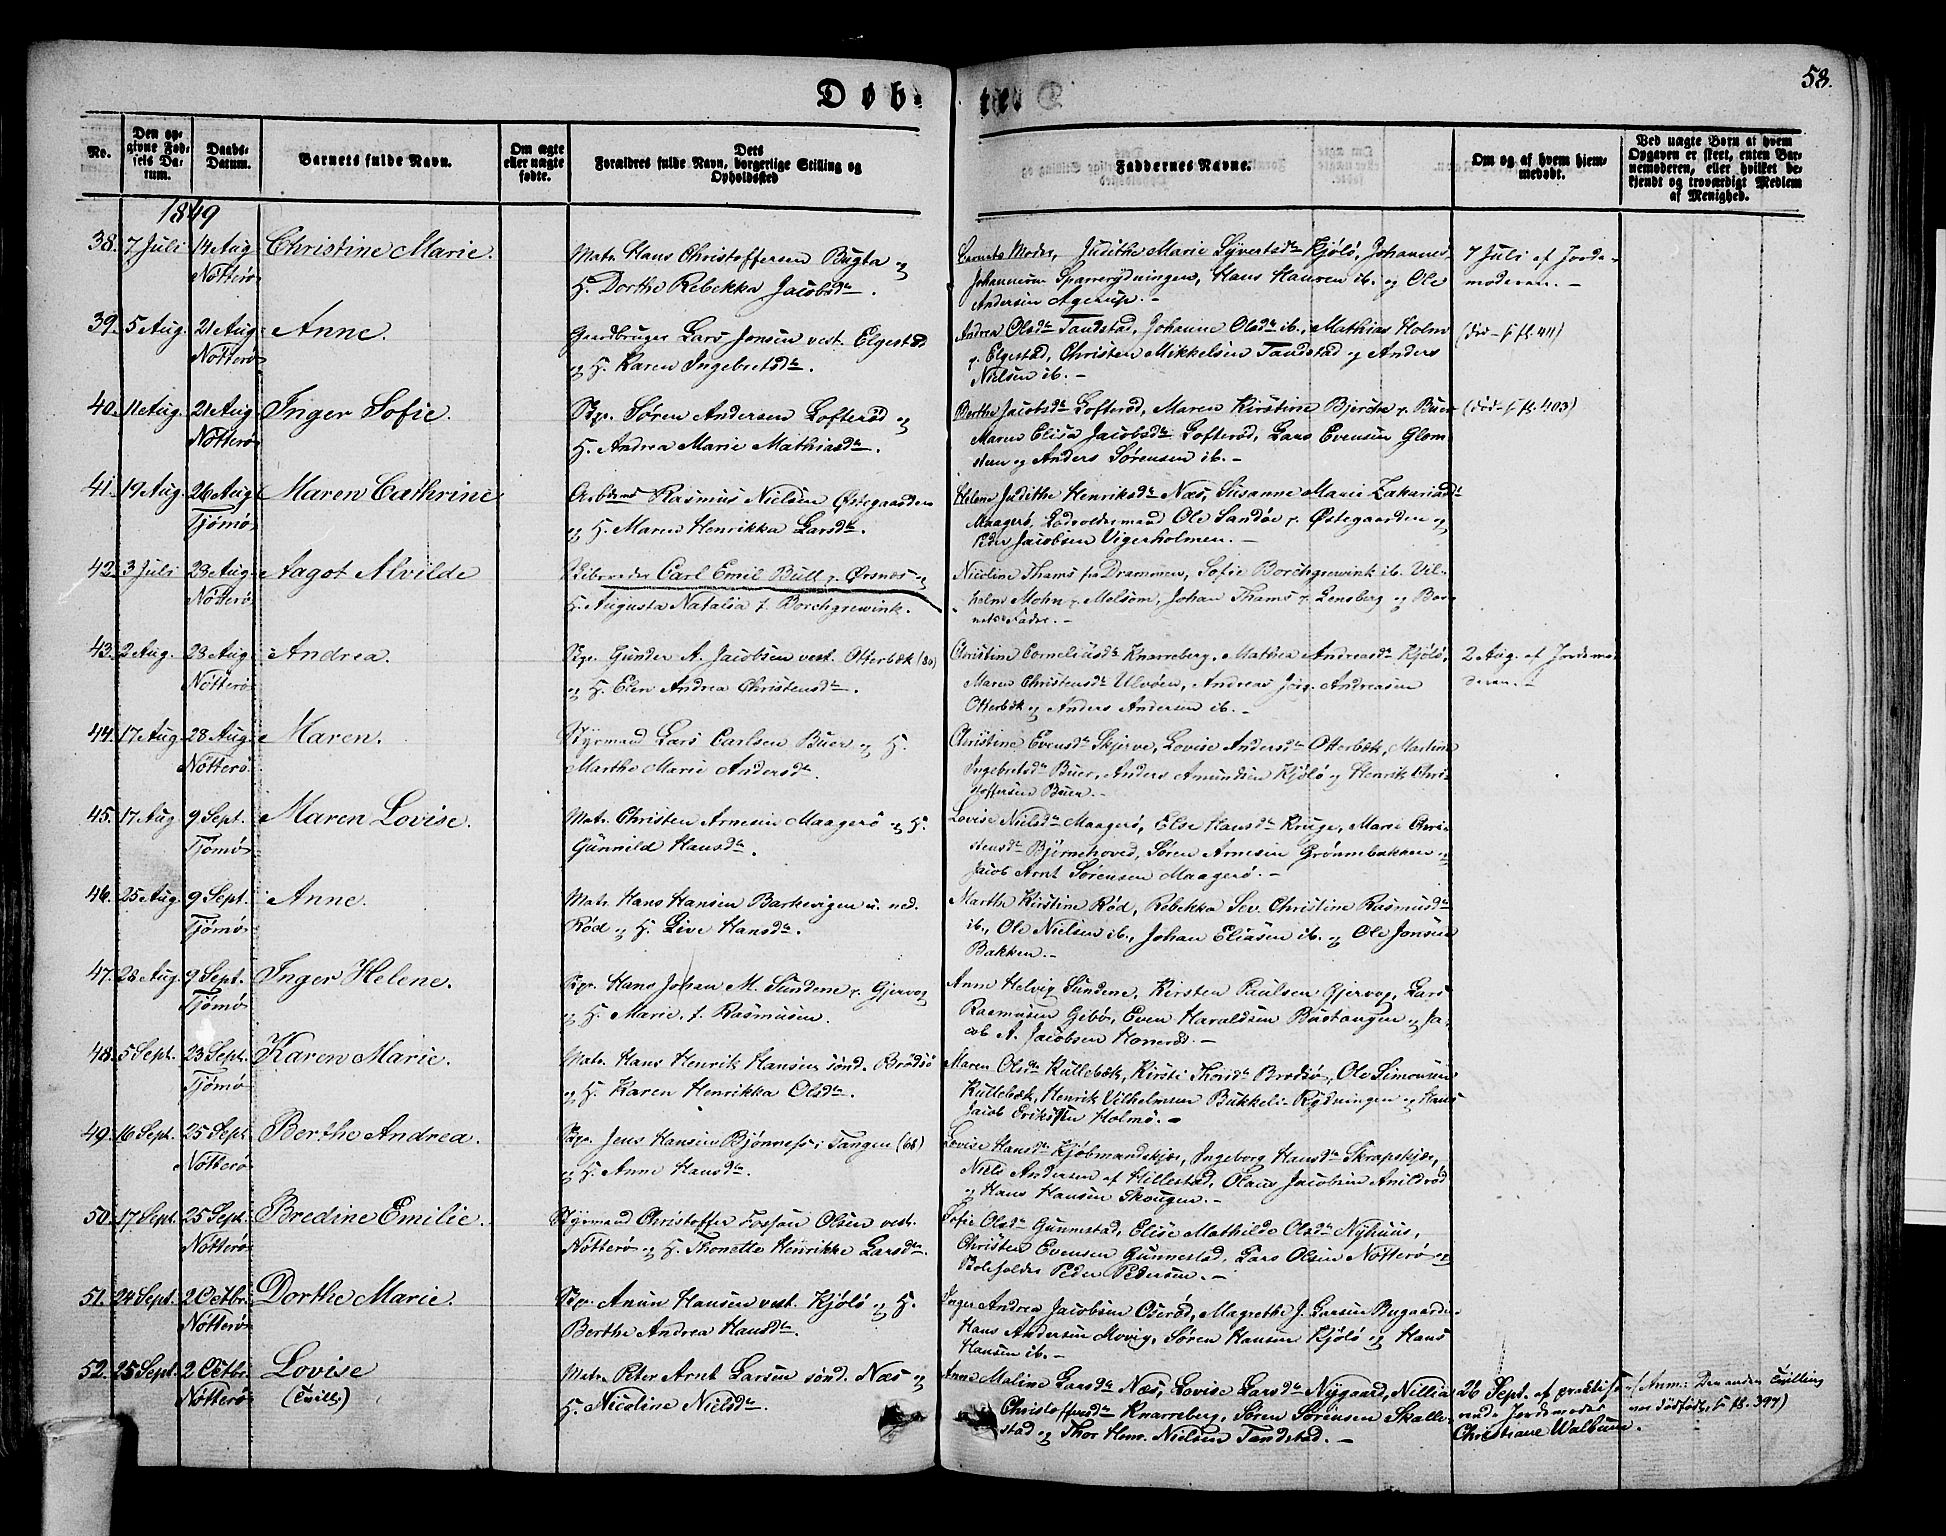 58.
Døbte
No.
Den opgivne Fødsels Datum.
Daabs-Datum.
Barnets fulde Navn.
Om ægte eller uægte fødte.
Dets Forældres fulde Navn, borgerlige Stilling og Opholdssted
Faddernes Navne.
Om og af hvem hjemmedøbt.
Ved uægte Børn af hvem Opgaven er skeet, enten Barnemoderen, eller hvilket bekjendt og troværdigt Medlem af Menighed.
1849
38. 7 Juli 14 Aug Nötterö Christine Marie.
Matr. Hans Christoffersen Bugta og
H. Dorthe Rebekka Jacobsdtr.
Barnets Moder, Judithe Marie Syvertsdtr Kjölö, Johannes
Johannesen Sparrerydningen, Hans Hansen ib. og Ole
Andersen Agerup. –
7 Juli af Jorde-
moderen. –
39. 5 Aug. 21 Aug Nötterö Anne.
Gaardbruger Lars Jonsen vest. Elgestad
og H. Karen Ingebretsdtr.
Andrea Olsdtr Tandstad, Johanne Olsdtr ib., Mathias Holm
p. Elgestad, Christen Mikkelsen Tandstad og Anders
Nielsen ib. –
(död – f. fl. 411)
40. 11 Aug. 21 Aug Nötterö Inger Sofie.
Bgr. Sören Andersen Lofteröd og
H. Andrea Marie Mathiasdtr.
Berthe Jacobsdtr Lofteröd, Maren Kirstine Bjerche p. Buer
Maren Elisa Jacobsdtr Lofteröd, Lars Evensen Glom-
sten og Anders Sörensen ib. –
(död – f. fl. 403)
41. 19 Aug. 26 Aug Tjömö Maren Cathrine
Arbdsmd Rasmus Nielsen Östegaarden
og H. Maren Henrikka Larsdtr.
Helene Judithe Henriksdtr Næs, Susanne Marie Zakariasdtr
Maagerö, Lodsoldermand Ole Sandöe p. Östegaarden og
Peder Jacobsen Vigerholmen. –
42. 3 Juli 28 Aug. Nötterö Aagot Alvilde
Skibsreder Carl Emil Bull p. Örsnæs og
H. Augusta Natalia f. Borchgrewink.
Nicoline Thams fra Drammen, Sofie Borchgrewink ib. Vil-
helm Mohn p. Melsom, Johan Thams p. Lensberg og Bar-
nets Fader. –
43. 2 Aug. 28 Aug Nötterö Andrea.
Bgr. Gunder A. Jacobsen vest. Otterbæk (80)
og H. Elen Andrea Christensdtr.
Christine Corneliusdtr Knarreberg, Mathea Andreasdtr Kjölö,
Maren Christensdtr Ulvöen, Andreas Jörg. Andreasen
Otterbæk og Anders Andersen ib. –
2 Aug. af Jordemo-
deren. –
44. 17 Aug 28 Aug. Nötterö Maren.
Styrmand Lars Carlsen Buer og H.
Marthe Marie Andersdtr.
Christine Evensdtr Skjerve, Lovise Andersdtr Otterbæk, Martine
Ingebretsdtr Buer, Anders Amundsen Kjölö og Henrik Chris-
toffersen Buer. –
45. 17 Aug 9 Sept. Tjömö Maren Lovise.
Matr. Christen Arnesen Maagerö og H.
Gunnild Hansdtr.
Lovise Nielsdtr Maagerö, Else Hansdtr Kruge, Marie Chri-
stensdtr Bjørnehoved, Sören Arnesen Grönnebakken og
Jacob Arnt Sörensen Maagerö. –
46. 25 Aug. 9 Sept. Tjömö Anne.
Matr. Hans Hansen Barkevigen u. ned.
Röd og H. Live Hansdtr.
Marthe Kirstine Röd, Rebekka Sev. Christine Rasmusdtr
ib., Ole Nielsen ib., Johan Eliasen ib. og Ole Jonsen
Bakken. –
47. 28 Aug. 9 Sept. Tjömö Inger Helene.
Bgr. Hans Johan M. Sundene p. Gjervog
og H. Marie, f. Rasmusen.
Anne Helvig Sundene, Kirsten Paulsen Gjervog, Lars
Rasmusen Gibö, Even Haraldsen Bustangen og Ja-
cob A. Jacobsen Honeröd. –
48. 5 Sept. 23 Sept. Tjömö Karen Marie.
Matr. Hans Henrik Hansen sönd. Brödsö
og H. Karen Henrikka Olsdtr.
Maren Olsdtr Kullebæk, Kirsti Thorisdtr Brödsö, Ole Simonsen
Kullebæk, Henrik Vilhelmsen Bukkeli-Rydningen og Hans
Jacob Eriksen Holmö. –
49. 16 Sept. 25 Sept. Nötterö Berthe Andrea.
Bgr. Jens Hansen Bjönnes i Tangen (68)
og H. Anne Hansdtr.
Lovise Hansdtr Kjöbmandskjær, Ingeborg Hansdtr Skrapskjær,
Niels Andersen af Hillestad, Olaus Jacobsen Anildröd
og Hans Hansen Skougen. –
50. 17 Sept. 25 Sept. Nötterö Bredine Emilie.
Styrmand Christoffer Fossan Olsen vest.
Nötterö og H. Thonette Henrikke Larsdtr.
Sofie Olsdtr Gunnestad, Elise Mathilde Olsdtr Nyhuus,
Christen Evensen Gunnestad, Lars Olsen Nötterö og
Boleholder Peder Pedersen. –
51. 24 Sept. 2 Octbr. Nötterö Dorthe Marie.
Bgr. Anun Hansen vest. Kjölö og H.
Berthe Andrea Hansdtr.
Inger Andrea Jacobsen Oseröd, Magrethe J. Larsen Bugaarde
Hans Andersen Movig, Sören Hansen Kjölö og Hans
Hansen ib. –
52. 25 Sept. 2 Octbr. Nötterö Lovise
(Tvill)
Matr. Peter Arnt Larsen sönd. Næs og
H. Nicoline Nielsdtr.
Anne Maline Larsdtr Næs, Lovise Larsdtr Nygaard, Nillia
Christoffersdtr Knarreberg, Sören Sörensen Skalle-
stad og Thor Hem. Nielsen Tandstad. –
26 Sept. af praktise-
rende Jordemoder
Christiane Walbum.
(Anm: Den anden Tvilling
var dödfödt, f. fl. 397)